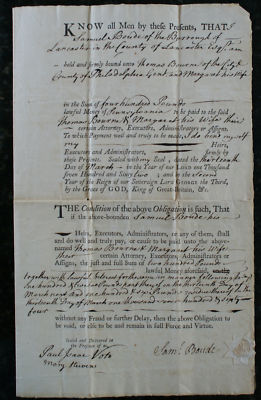 KNOW all Men by these Presents, THAT I
Samuel Boude of the Borrough of
Lancaster in the County of Lancaster Esqr. am
held and firmly bound unto Thomas Bourne of the City &
County of Philadelphia Gent and Margaret his Wife
in the Sum of four hundred Pounds
lawful Money of Pennsylvania to be paid to the said
Thomas Bourne & Margaret his Wife their
certain Attorney, Executors, Administrators or Assigns.
To which Payment well and truly to be made, I do bind myself
my Heirs,
Executors and Administrators, firmly by
these Presents. Sealed with my Seal, dated the thirteenth
Day of March in the Year of our Lord one Thousand
seven Hundred and Sixty two and the second
Year of the Reign of our Sovereign Lord George the Third,
by the Grace of GOD, King of Great-Britain, &c.
THE Condition of the above Obligation is such, That
if the above-bounden Samuel Boude his
Heirs, Executors, Administrators, or any of them, shall
and do well and truly pay, or cause to be paid unto the above-
named Thomas Bourne & Margaret his Wife
their certain Attorney, Executors, Administrators or
Assigns, the just and full Sum of two hundred Pounds
lawful Money aforesaid,
together with lawful Interest for the same in manner following
one hundred Pounds part thereof on the thirteenth Day of
March next and one hundred Pounds residue thereof on the
thirteenth Day of March one thousand seven hundred & sixty
four
without any Fraud or further Delay, then the above Obligation
to be void, or else to be and remain in full Force and Virtue.
Sealed and Delivered
in the Presence of
Paul Isaac Voto
Mary
Saml. Boude